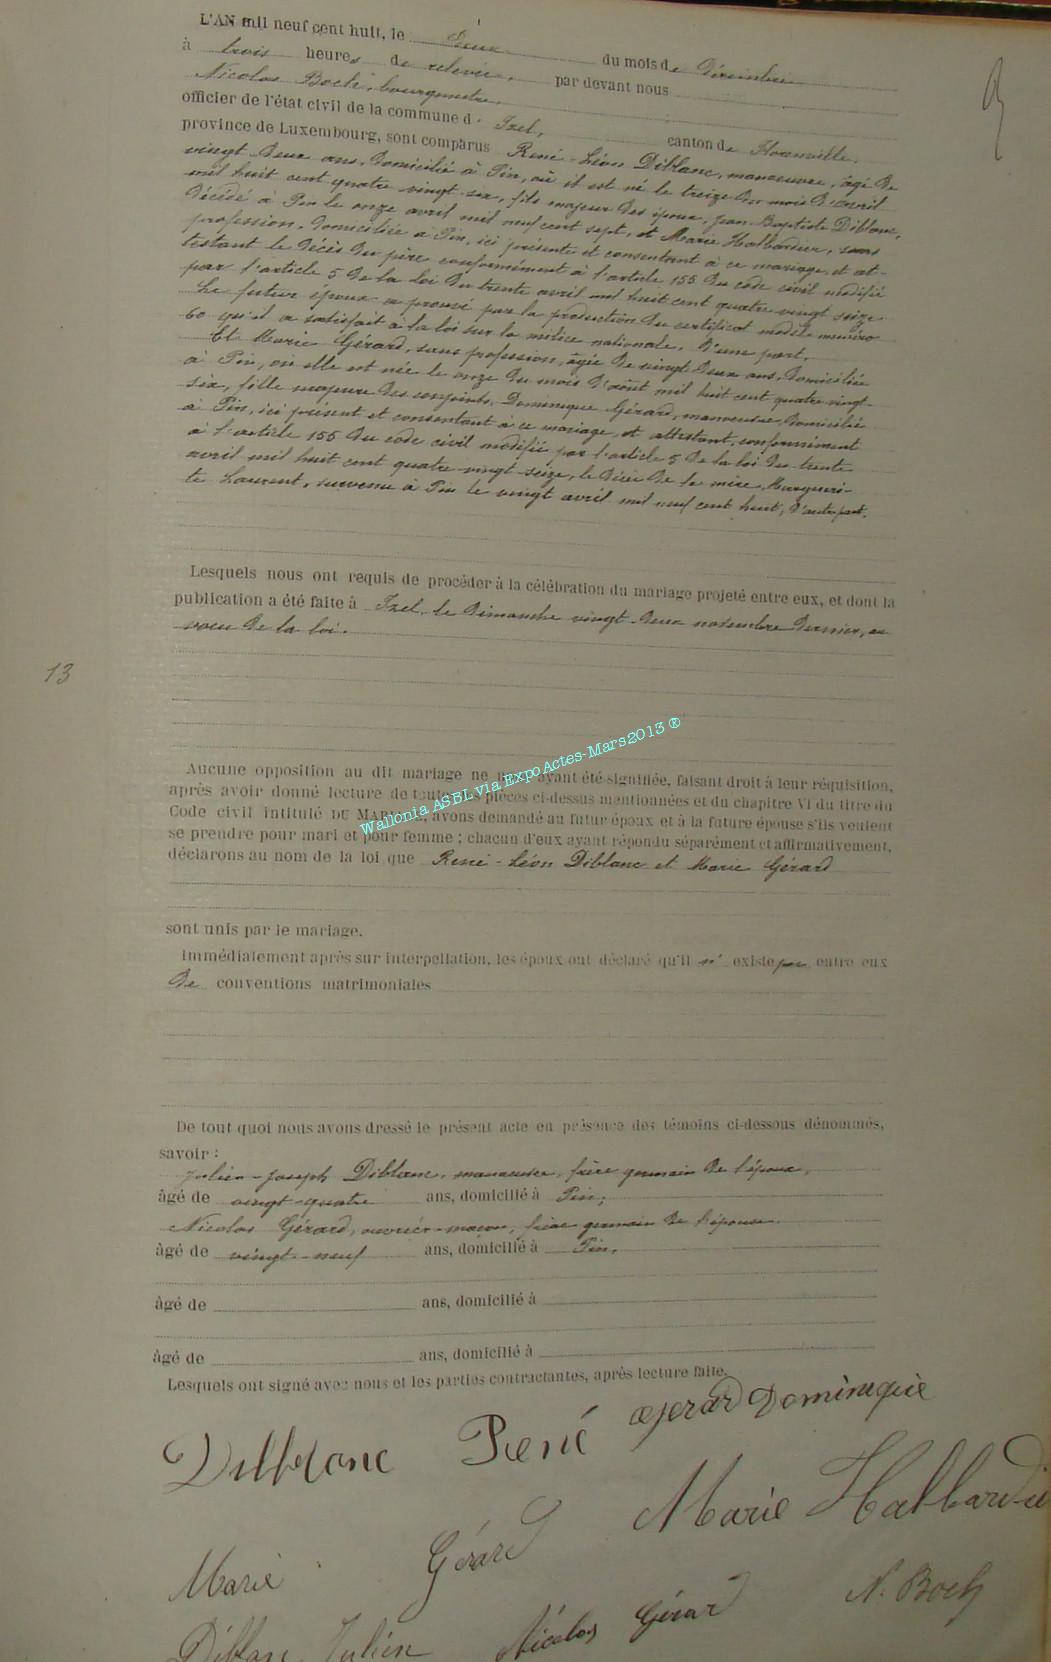 L'AN mil neuf cent huit, le deux du mois de Décembre
à trois heures de relevée, par devant nous
Nicolas Boch, bourgmestre,
officier de l'état civil de la commune d'Izel, canton de Florenville,
province de Luxembourg, sont comparus René-Léon Diblanc, manoeuvre, âgé de
vingt-deux ans, domicilié à Pin, où il est né le treize du mois d'avril
mil huit cent quatre-vingt-six, fils majeur des époux, Jean-Baptiste Diblanc,
décédé à Pin le onze avril mil neuf cent sept, et Marie Halbardier, sans
profession, domiciliée à Pin, ici présente et consentant à ce mariage, et at-
testant le décès du père conformément à l'article 155 du code civil modifié
par l'article 5 de la loi du trente avril mil huit cent quatre-vingt-seize.
Le futur époux a prouvé par la production du certificat modèle numéro
60 qu'il a satisfait à la loi sur la milice nationale. D'une part.
Et Marie Gérard, sans profession, âgée de vingt-deux ans, domiciliée
à Pin, où elle est née le onze du mois d'août mil huit cent quatre-vingt-
six, fille majeure des conjoints, Dominique Gérard, manoeuvre, domicilié
à Pin, ici présent et consentant à ce mariage, et attestant, conformément
à l'article 155 du code civil modifié par l'article 5 de la loi du trente
avril mil huit cent quatre-vingt-seize, le décès de la mère, Marguéri-
te Laurent, survenu à Pin le vingt avril mil neuf cent huit, d'autre part.
Lesquels nous ont requis de procéder à la célébration du mariage projeté entre eux, et dont la
publication a été faite à Izel, le dimanche vingt-deux novembre dernier, au
voeu de la loi.
13
Aucune opposition au dit mariage ne ayant été signifiée, faisant droit à leur réquisition,
après avoir donné lecture de toutes les pièces ci-dessus mentionnées et du chapitre VI du titre du
Code civil intitulé DU MARIAGE, avons demandé au futur époux et à la future épouse s'ils veulent
se prendre pour mari et pour femme ; chacun d'eux ayant répondu séparément et affirmativement,
déclarons au nom de la loi que René-Léon Diblanc et Marie Gérard
Wallonia ASBL via ExpoActes-Mars2013 ®
sont unis par le mariage.
Immédiatement après sur interpellation, les époux ont déclaré qu'il n'existe pas entre eux
de conventions matrimoniales
De tout quoi nous avons dressé le présent acte en présence des témoins ci-dessous dénommés,
savoir :
Julien-Joseph Diblanc, manoeuvre, frère germain de l'époux,
âgé de vingt-quatre ans, domicilié à Pin;
Nicolas Gérard, ouvrier-maçon, frère germain de l'épouse.
âgé de vingt-neuf ans, domicilié à Pin.
âgé de ans, domicilié à
âgé de ans, domicilié à
Lesquels ont signé avec nous et les parties contractantes, après lecture faite.
Dilblanc René Gerard Dominique
Marie Gérard Marie Halbardie
Diblanc Julien Nicolas Gérard N. Boch